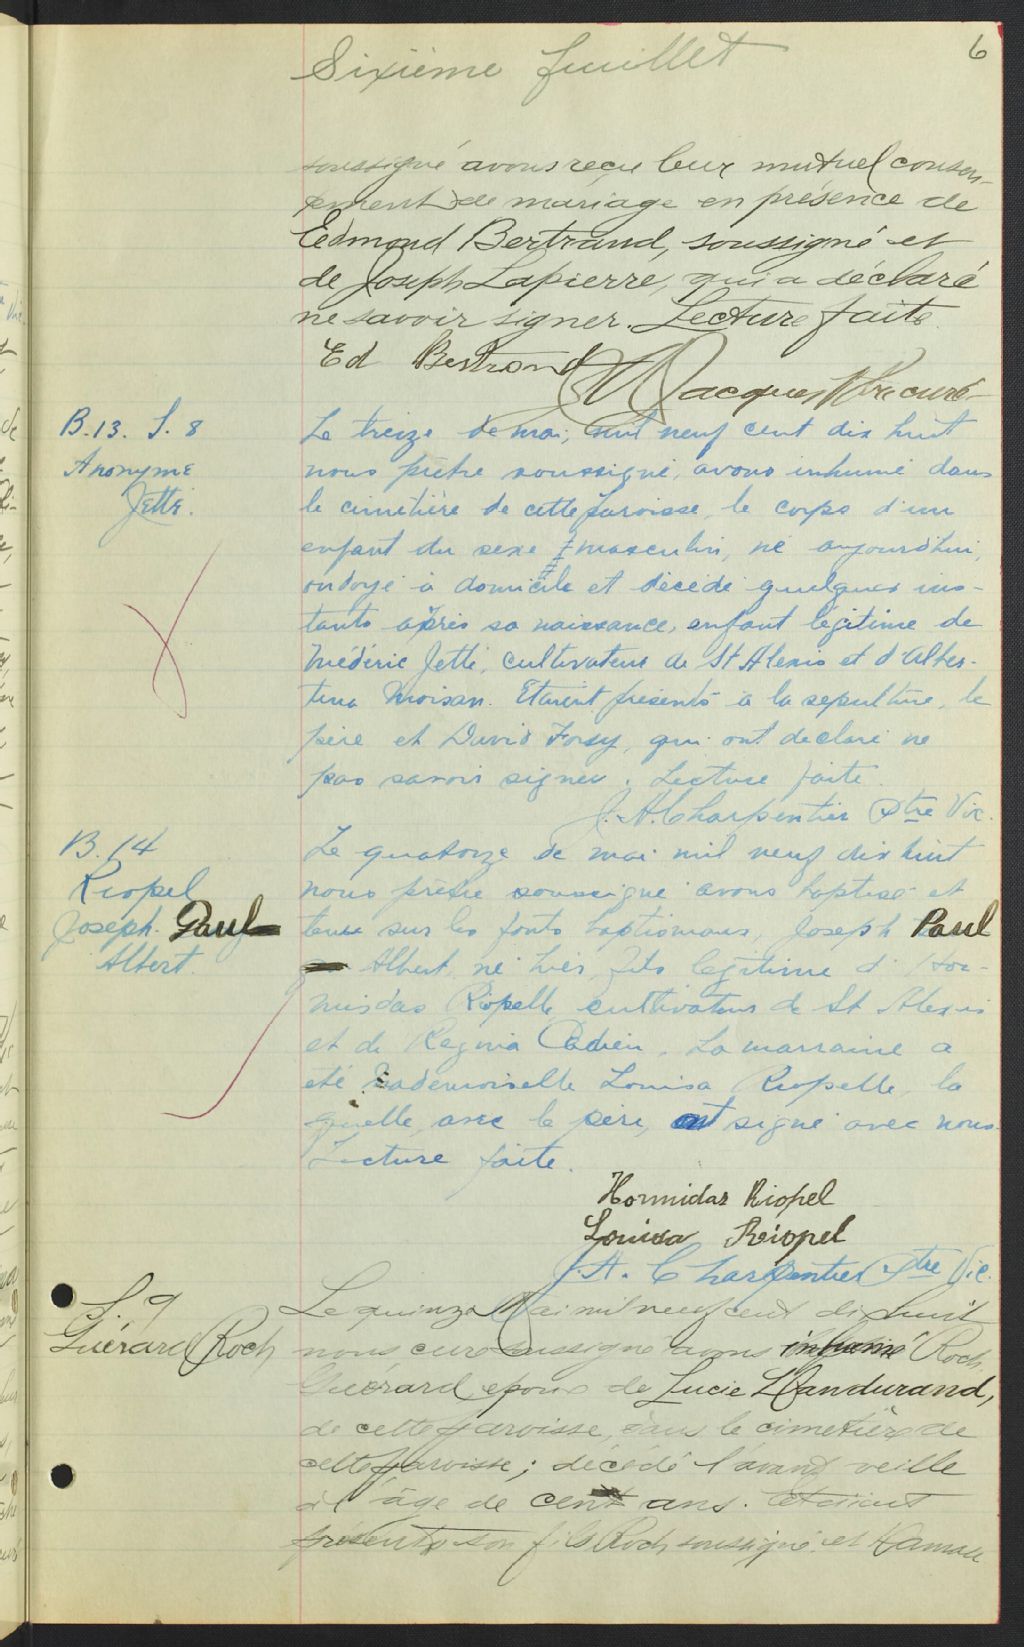 6
Sixième feuillet
soussigné avons reçu leur mutuel consen-
tement de mariage en présence de
Edmond Bertrand, soussigné et
de Joseph Lapierre, qui a déclaré
ne savoir signer. Lecture faite.
Ed Bertrand
Jacques Ptre curé
B.13. S. 8
Anonyme
Jetté.
Le treize de mai, mil neuf cent dix huit
nous prêtre soussigné, avons inhumé dans
le cimetière de cette paroisse, le corps d'un
enfant du sexe masculin, né aujourd'hui,
ondoyé à domicile et décédé quelques ins-
tants après sa naissance, enfant légitime de
Médéric Jetté, cultivateur de St Alexis et d'Alber-
tina Moisan. Etaient présents à la sépulture, le
père et David Foisy, qui ont déclaré ne
pas savoir signer. Lecture faite.
J. A. Charpentier Ptre Vic.
B. 14
Riopel
Joseph Paul
Albert.
Le quatorze de mai mil neuf dix huit
nous prêtre soussigné avons baptisé et
tenu sur les fonts baptismaux, Joseph Paul
Albert, né hier, fils légitime d'Hor-
misdas Riopelle cultivateur de St Alexis
et de Regina Cadieu. La marraine a
été Mademoiselle Louisa Riopelle, la
quelle, avec le père, ont signé avec nous.
Lecture faite.
Hormidas Riopel
Louisa Riopel
J. A. Charpentier Ptre Vic.
S. 9
Guérard Roch
Le quinze Mai mil neuf cent dix huit
nous curé soussigné avons inhumé Roch
Guérard époux de Lucie L'Handurand,
de cette paroisse, dans le cimetière de
cette paroisse; décédé l'avant veille
à l'âge de cent ans. Etaient
présents son fils Roch soussigné et